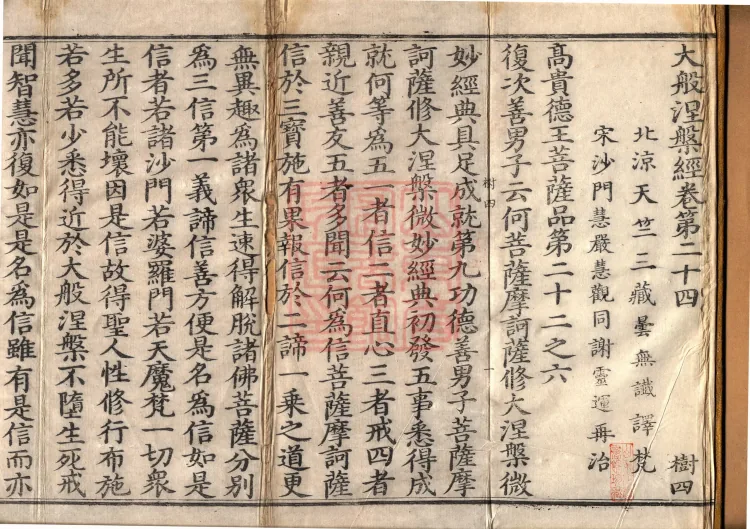 大般涅槃經卷第二十四 樹四
北涼天竺三藏曇無讖譯梵
宋沙門慧嚴慧觀同謝靈運再治
高貴德王菩薩品第二十二之六
復次善男子云何菩薩摩訶薩修大涅槃微
妙經典具足成就第九功德善男子菩薩摩
樹四
訶薩修大涅槃微妙經典初發五事悉得成
就何等為五一者信二者直心三者戒四者
親近善友五者多聞云何為信菩薩摩訶薩
信於三寶施有果報信於二諦一乘之道更
無異趣為諸衆生速得解脫諸佛菩薩分別
為三信第一義諦信善方便是名為信如是
信者若諸沙門若婆羅門若天魔梵一切衆
生所不能壞因是信故得聖人性修行布施
若多若少悉得近於大般涅槃不墮生死戒
聞智慧亦復如是是名為信雖有是信而亦